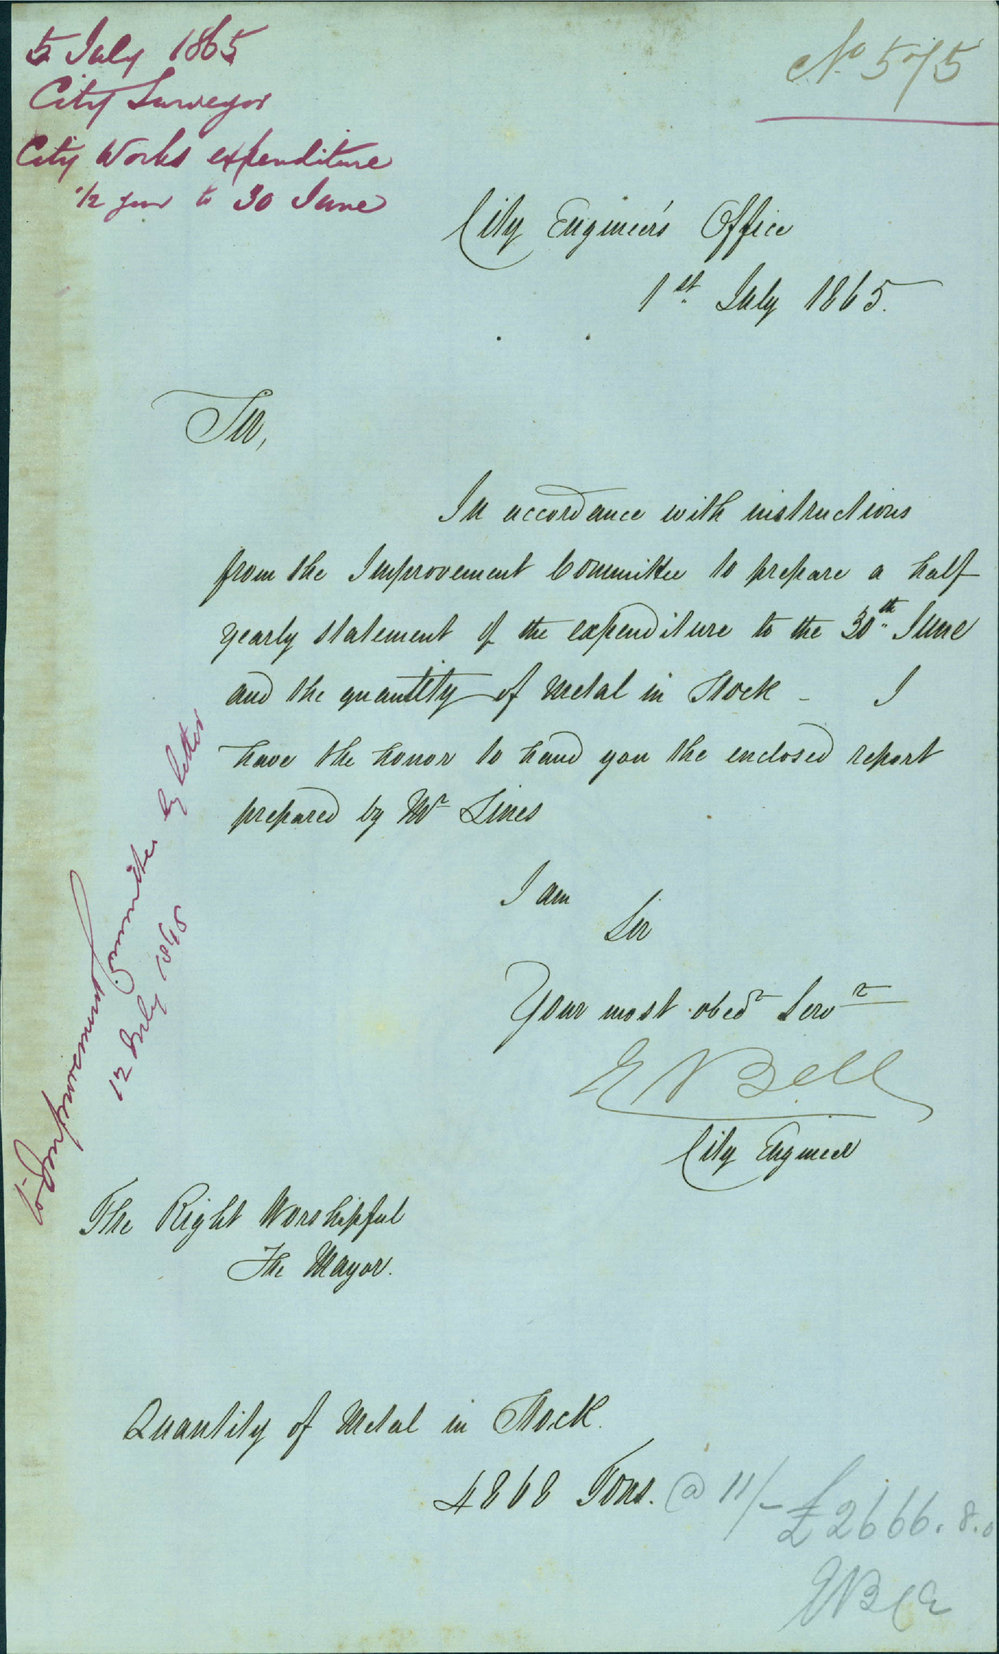 5 July 1865
City Surveyor
City Works expenditure
1/2 year to 30 June
No 575
City Engineer's Office
1st July 1865.
Sir,
In accordance with instructions
from the Improvement Committee to prepare a half
yearly statement of the expenditure to the 30th June
and the quantity of Metal in Stock - I
have the honor to hand you the enclosed report
prepared by Mr Lines
I am
Sir
Your most obedt Servt
E Bell
City Engineer
to Improvement Committee by letter
12 July 1865
The Right Worshipful
The Mayor.
Quantity of Metal in Stock.
4868 Tons. @ 11/- £2666.8.0